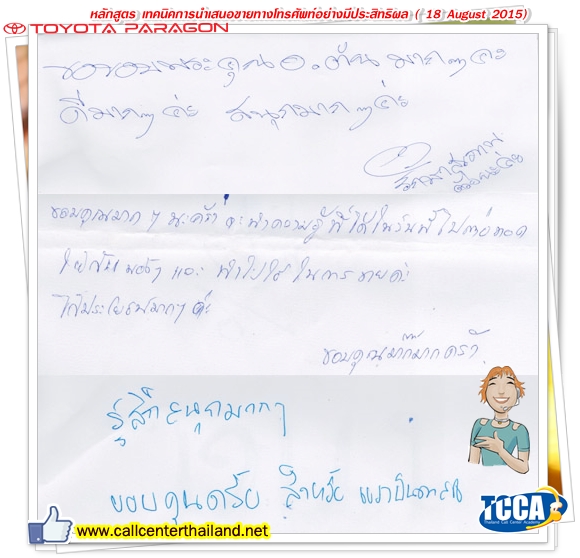 หลักสูตร เทคนิคการนำเสนอขายทางโทรศัพท์อย่างมีประสิทธิผล ( 18 August 2015)
TOYOTA PARAGON
ขอขอบพระคุณ อ. มากๆค่ะ
ดีมากๆ ค่ะ สนุกมากๆค่ะ
ขอบคุณมากๆ นะคร้า จะนำความรู้ที่ได้ในวันนี้ไป
ให้กับ น้องๆ และ นำไปใช้ในการขายค่ะ
ได้ประโยชน์มากๆ ค่ะ
ขอบคุณม๊ากมากคร้า
รู้สึกสนุกมากๆ
ขอบคุณครับ สำหรับ
TCCA
Thailand Call Center Academy
www.callcenterthailand.net